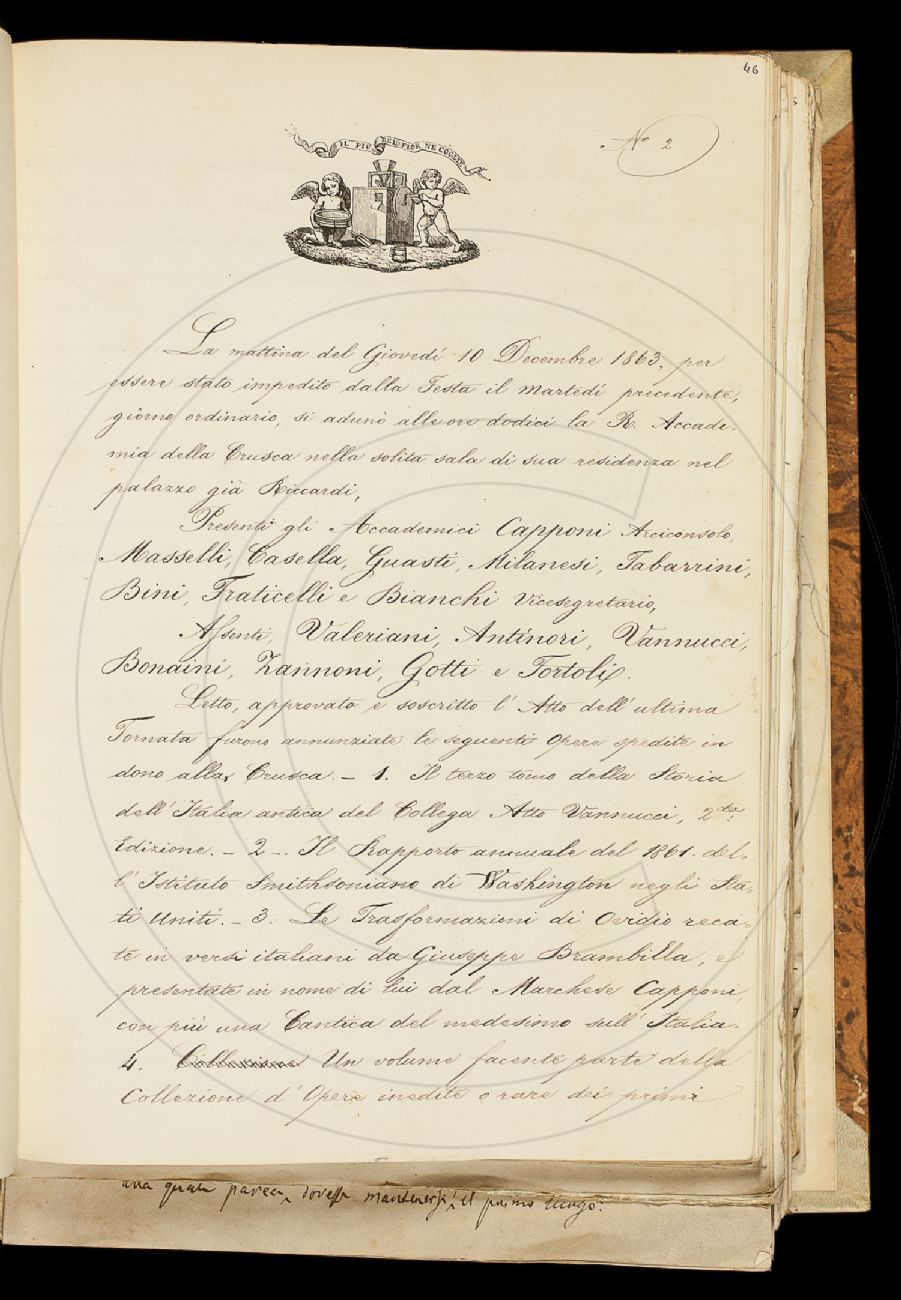 46
Nº 2
IL PIÙ BEL FIOR NE COGLIE
La mattina del Giovedì 10 Decembre 1863, per
essere stato impedito dalla Festa il Martedì precedente,
giorno ordinario, si adunò alle ore dodici la R. Accade-
mia della Crusca nella solita sala di sua residenza nel
palazzo già Riccardi,
Presenti gli Accademici Capponi Arciconsolo,
Masselli, Casella, Guasti, Milanesi, Tabarrini,
Bini, Fraticelli e Bianchi Vicesegretario,
Assenti, Valeriani, Antinori, Vannucci,
Bonaini, Zannoni, Gotti e Tortoli.
Letto, approvato e soscritto l' Atto dell' ultima
Tornata furono annunziate le seguenti Opere spedite in
dono alla Crusca. - 1. Il terzo tomo della Storia
dell' Italia antica del Collega Atto Vannucci, 2da.
Edizione. - 2 -. Il Rapporto annuale del 1861. del-
l' Istituto Smithsoniano di Washington negli Sta-
ti Uniti. - 3. Le Trasformazioni di Ovidio reca-
te in versi italiani da Giuseppe Brambilla, e
presentate in nome di lui dal Marchese Capponi,
con più una Cantica del medesimo sull' Italia.
4. Un volume facente parte della
Collezione d' Opere inedite o rare dei primi
una quale parea, dovesse mantenersi il primo luogo.